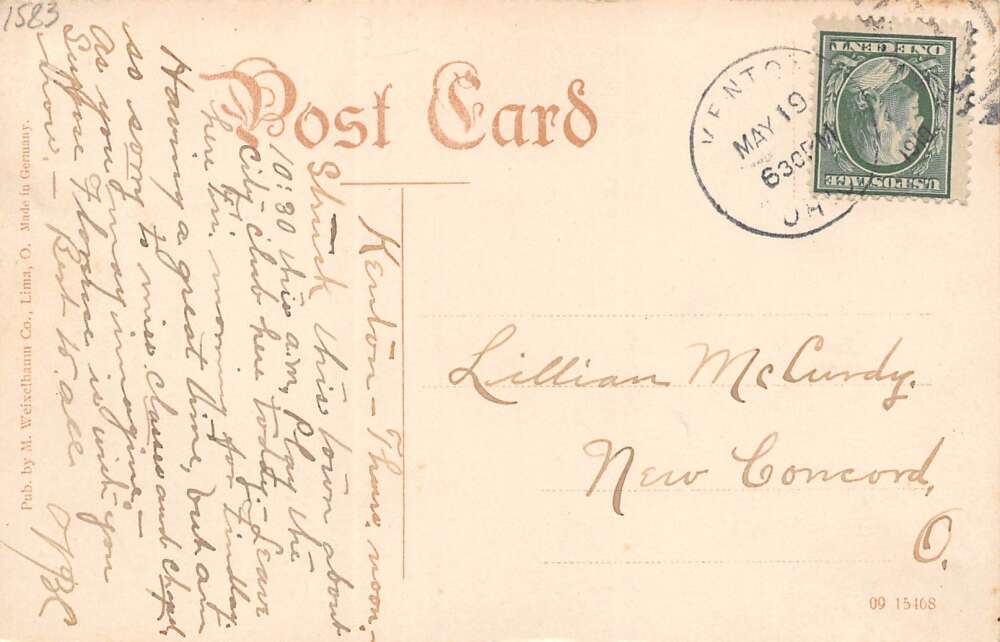 1583
Post Card
KENTON
MAY 19
630 PM
OHIO
ONE CENT
U.S. POSTAGE
Kenton - Thurs. noon. -
Struck this town about
10:30 this a.m. Play the
City club here today. Leave
here Fri. morning for Findlay.
Having a great time, but am
so sorry to miss classes and chapel
as you may imagine -
Suppose Florence is with you
now. - Best to all
Lillian McCurdy.
New Concord,
O.
Pub. by M. Weixelbaum Co., Lima, O. Made in Germany.
09 15468